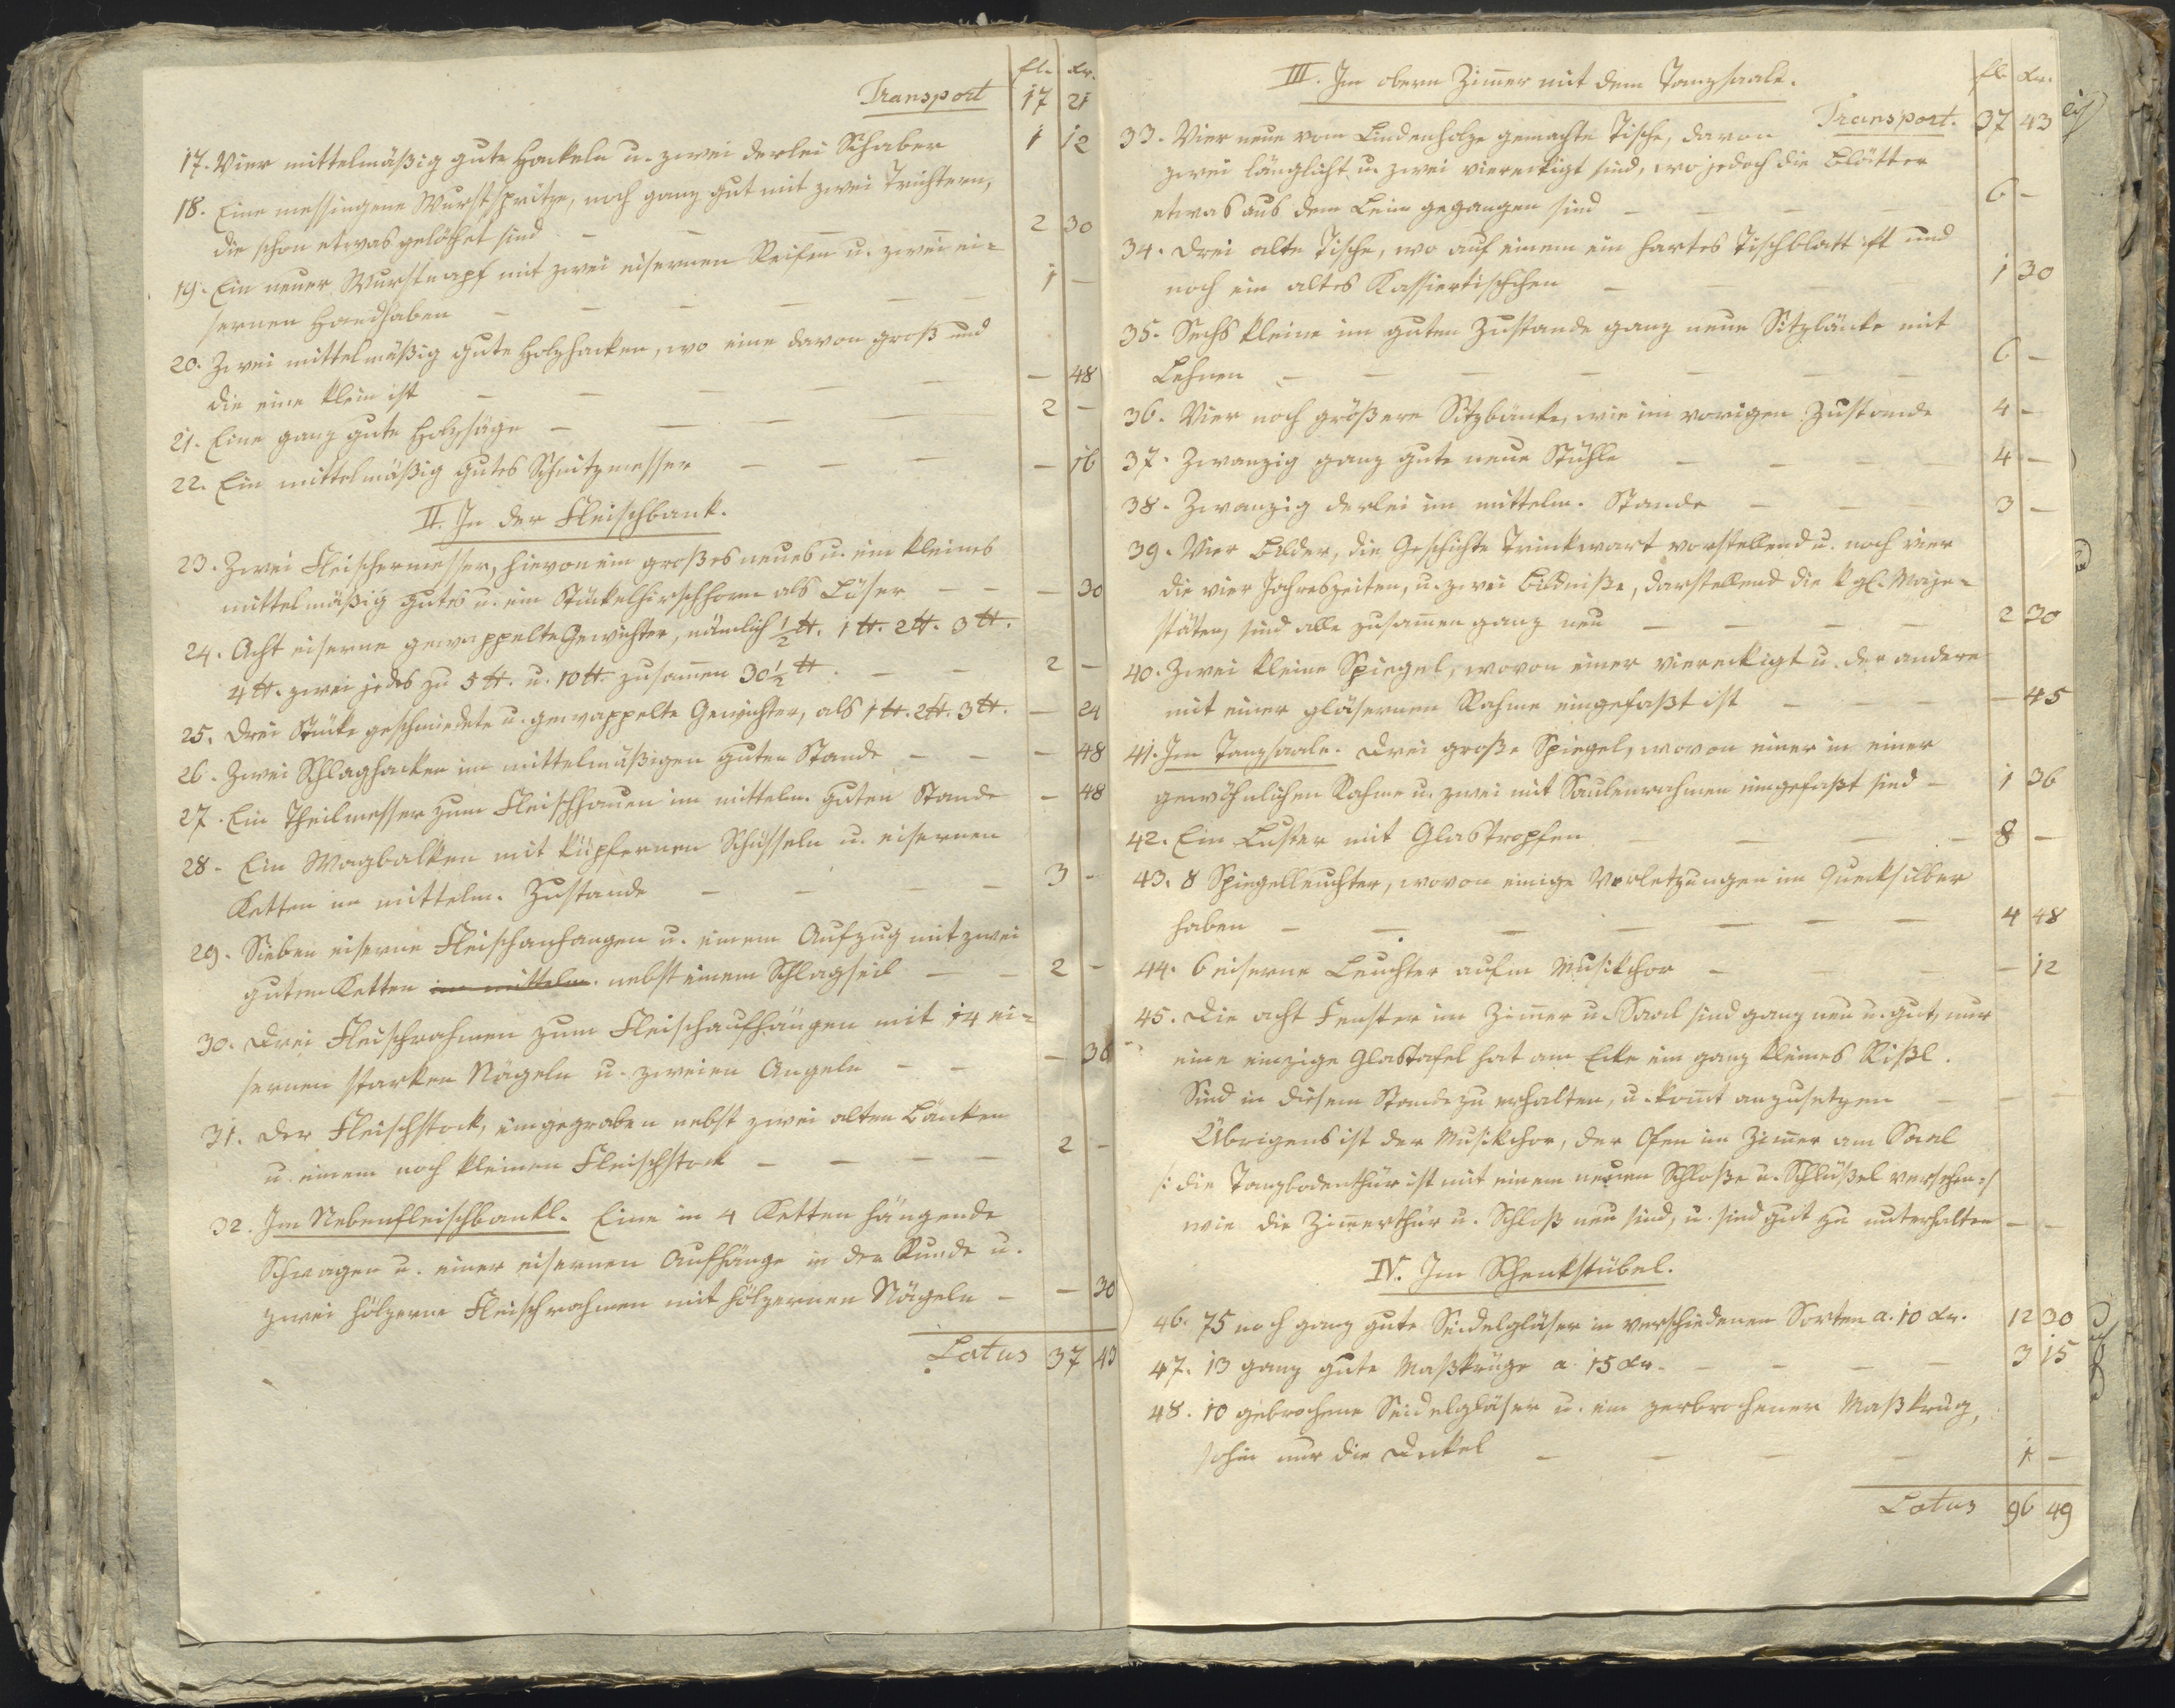 fl. xr.
Transport 17 21
17. Vier mittelmäßig gute Hackeln u. zwei derlei Schaber 1 12
18. Eine messingene Wurstspritze, noch ganz gut mit zwei Trichtern,
die schon etwas gelöthet sind – – – 2 30
19. Ein neuer Wurstnapf mit zwei eisernen Reifen u. zwei ei=
sernen Handhaben – – – – – – 1 –
20. Zwei mittelmäßig gute Holzhacken, wo eine davon groß und
die eine klein ist – – – – – – 48
21. Eine ganz gute Holzsäge – – – – 2 –
22. Ein mittelmäßig gutes Schnitzmesser – – – – 16
II. In der Fleischbank.
23. Zwei Fleischermesser, hievon ein großes neues u. ein kleines
mittelmäßig gutes u. ein Stückelhirschhorn als Lüser – – – 30
24. Acht eiserne gewappelte Gewichter, nämlich ½ ℔. 1 ℔. 2 ℔. 3 ℔.
4 ℔. zwei jedes zu 5 ℔. u. 10 ℔. zusam̄en 30½ ℔ – – 2 –
25. Drei Stücke geschmiedete u. gewappelte Gewichter, als 1 ℔. 2 ℔. 3 ℔. – 24
26. Zwei Schlaghacken im mittelmäßigen guten Stande – – – 48
27. Ein Theilmesser zum Fleischhauen im mittelm. guten Stande – 48
28. Ein Wagbalken mit küpfernen Schüsseln u. eisernen
Ketten im mittelm. Zustande – – – – 3 –
29. Sieben eiserne Fleischanhangen u. einem Aufzug mit zwei
guten Ketten im mittelm. nebst einem Schlagseil – – 2 –
30. Drei Fleischrahmen zum Fleischaufhängen mit 14 ei=
sernen starken Nägeln u. zweien Angeln – – – 36
31. Der Fleischstock, eingegraben nebst zwei alten Bänken
u. einem noch kleinen Fleischstock – – – – 2 –
32. Im Nebenfleischbankl. Eine in 4 Ketten hängende
Schwagen u. einer eisernen Aufhänge in der Runde u.
zwei hölzerne Fleischrahmen mit hölzernen Nägeln – – 30
Latus 37 43
III. Im obern Zim̄er mit dem Tanzsaale.
fl. xr.
Transport. 37 43
33. Vier neue vom Lindenholze gemachte Tische, davon
zwei länglicht u. zwei viereckigt sind, wo jedoch die Blätter
etwas aus dem Leim gegangen sind – – – 6 –
34. Drei alte Tische, wo auf einem ein hartes Tischblatt ist und
noch ein altes Kassiertischchen – – – 1 30
35. Sechs kleine im guten Zustande ganz neue Sitzbänke mit
Lehnen – – – – – – – 6 –
36. Vier noch größere Sitzbänke, wie im vorigen Zustande 4 –
37. Zwanzig ganz gute neue Stühle – – – – 4 –
38. Zwanzig derlei im mittelm. Stande – – – 3 –
39. Vier Bilder, die Geschichte Trinkwart vorstellend u. noch vier
die vier Jahreszeiten, u. zwei Bildniße, darstellend die kgl. Maje=
stäten, sind alle zusam̄en ganz neu – – – – 2 30
40. Zwei kleine Spiegel, wovon einer viereckigt u. der andere
mit einer gläsernen Rahme eingefaßt ist – – – – 45
41. Im Tanzsaale. Drei große Spiegel, wovon einer in einer
gewöhnlichen Rahme u. zwei mit Saulenrahmen eingefaßt sind – 1 36
42. Ein Luster mit Glastropfen – – – – 8 –
43. 8 Spiegelleuchter, wovon einige Verletzungen im Quecksilber
haben – – – – – – – 4 48
44. 6 eiserne Leuchter aufm Musikchor – – – – 12
45. Die acht Fenster im Zim̄er u. Saal sind ganz neu u. gut, nur
eine einzige Glastafel hat am Ecke ein ganz kleines Rißl.
Sind in diesem Stande zu erhalten, u. kom̄t anzusetzen – – –
Übrigens ist der Musikchor, der Ofen im Zim̄er am Saal
/: die Tanzbodenthür ist mit einem neuen Schloße u. Schlüßel versehen :/
wie die Zim̄erthür u. Schloß neu sind, u. sind gut zu unterhalten – –
IV. Im Schenkstübel.
46. 75 noch ganz gute Seidelgläser in verschiedenen Sorten a. 10 xr. 12 30
47. 13 ganz gute Maßkrüge a. 15 xr. – – – – 3 15
48. 10 gebrochene Seidelgläser u. ein zerbrochener Maßkrug,
sohin nur die Deckel – – – – 1 –
Latus 96 49